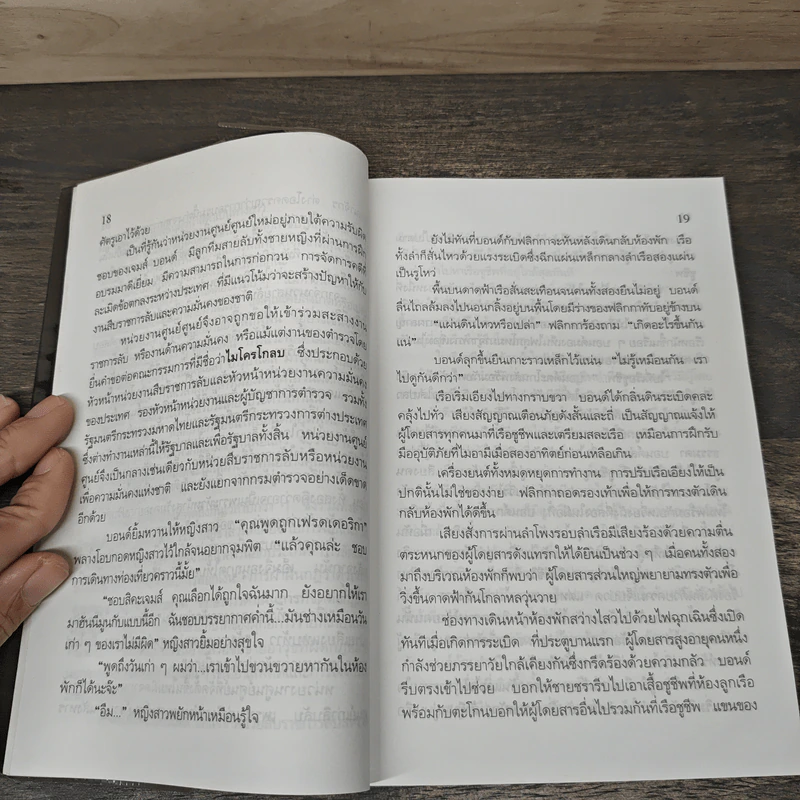 18
ศัตรูเอาไว้ด้วย
เป็นที่รู้กันว่าหน่วยงานศูนย์ศูนย์ใหม่อยู่ภายใต้ความรับผิด
ชอบของเจมส์ บอนด์ มีลูกทีมสายลับทั้งชายหญิงที่ผ่านการฝึก
อบรมมาดีเยี่ยม มีความสามารถในการก่อกวน การจัดการคดีที่
ละเมิดข้อตกลงระหว่างประเทศ ที่มีแนวโน้มว่าจะสร้างปัญหาให้กับ
งานสืบราชการลับและความมั่นคงของชาติ
หน่วยงานศูนย์ศูนย์จึงอาจถูกขอให้เข้าร่วมสะสางงาน
ราชการลับ หรืองานด้านความมั่นคง หรือแม้แต่งานของตำรวจโดย
ยื่นคำขอต่อคณะกรรมการที่มีชื่อว่าไมโครโกลบ ซึ่งประกอบด้วย
หัวหน้าหน่วยงานสืบราชการลับและหัวหน้าหน่วยงานความมั่นคง
ของประเทศ รองหัวหน้าหน่วยงานและผู้บัญชาการตำรวจ รวมทั้ง
รัฐมนตรีกระทรวงมหาดไทยและรัฐมนตรีกระทรวงการต่างประเทศ
ซึ่งต่างทำงานเหล่านี้ให้รัฐบาลและเพื่อรัฐบาลทั้งสิ้น หน่วยงานศูนย์
ศูนย์จึงเป็นกลางเช่นเดียวกับหน่วยสืบราชการลับหรือหน่วยงาน
เพื่อความมั่นคงแห่งชาติ และยังแยกจากกรมตำรวจอย่างเด็ดขาด
อีกด้วย
บอนด์ยิ้มหวานให้หญิงสาว “คุณพูดถูกเฟรดเดอริกา”
พลางโอบกอดหญิงสาวไว้ใกล้จนอยากจุมพิต “แล้วคุณล่ะ ชอบ
การเดินทางท่องเที่ยวคราวนี้มั้ย”
“ชอบสิคะเจมส์ คุณเลือกได้ถูกใจฉันมาก ยังอยากให้เรา
มาฮันนีมูนกับแบบนี้อีก ฉันชอบบรรยากาศค่ำนี้...มันช่างเหมือนวัน
เก่า ๆ ของเราไม่มีผิด” หญิงสาวยิ้มอย่างสุขใจ
“พูดถึงวันเก่า ๆ ผมว่า...เราเข้าไปขวนขวายหากันในห้อง
พักก็ได้นะจ๊ะ”
“อืม...” หญิงสาวพยักหน้าเหมือนรู้ใจ
19
ยังไม่ทันที่บอนด์กับฟลิกกาจะหันหลังเดินกลับห้องพัก เรือ
ทั้งลำก็สั่นไหวด้วยแรงระเบิดซึ่งฉีกแผ่นเหล็กกลางลำเรือสองแผ่น
เป็นรูโหว่
พื้นบนดาดฟ้าเรือสั่นสะเทือนจนคนทั้งสองยืนไม่อยู่ บอนด์
ลื่นไถลล้มลงไปนอนกลิ้งอยู่บนพื้นโดยมีร่างของฟลิกกาทับอยู่ข้างบน
“แผ่นดินไหวหรือเปล่า” ฟลิกการ้องถาม “เกิดอะไรขึ้นกัน
แน่”
บอนด์ลุกขึ้นยืนเกาะราวเหล็กไว้แน่น “ไม่รู้เหมือนกัน เรา
ไปดูกันดีกว่า”
เรือเริ่มเอียงไปทางกราบขวา บอนด์ได้กลิ่นดินระเบิดคละ
คลุ้งไปทั่ว เสียงสัญญาณเตือนภัยดังสั้นและถี่ เป็นสัญญาณแจ้งให้
ผู้โดยสารทุกคนมาที่เรือชูชีพและเตรียมสละเรือ เหมือนการฝึกรับ
มืออุบัติภัยที่ไมอามีเมื่อสองอาทิตย์ก่อนเหลือเกิน
เครื่องยนต์ทั้งหมดหยุดการทำงาน การปรับเรือเอียงให้เป็น
ปกตินั้นไม่ใช่ของง่าย ฟลิกกาถอดรองเท้าเพื่อให้การทรงตัวเดิน
กลับห้องพักได้ดีขึ้น
เสียงสั่งการผ่านลำโพงรอบลำเรือมีเสียงร้องด้วยความตื่น
ตระหนกของผู้โดยสารดังแทรกให้ได้ยินเป็นช่วง ๆ เมื่อคนทั้งสอง
มาถึงบริเวณห้องพักก็พบว่า ผู้โดยสารส่วนใหญ่พยายามทรงตัวเพื่อ
วิ่งขึ้นดาดฟ้ากันโกลาหลวุ่นวาย
ช่องทางเดินหน้าห้องพักสว่างไสวไปด้วยไฟฉุกเฉินซึ่งเปิด
ทันทีเมื่อเกิดการระเบิด ที่ประตูบานแรก ผู้โดยสารสูงอายุคนหนึ่ง
กำลังช่วยภรรยาวัยใกล้เคียงกันซึ่งกรีดร้องด้วยความกลัว บอนด์
รีบตรงเข้าไปช่วย บอกให้ชายชรารีบไปเอาเสื้อชูชีพที่ห้องลูกเรือ
พร้อมกับตะโกนบอกให้ผู้โดยสารอื่นไปรวมกันที่เรือชูชีพ แขนของ